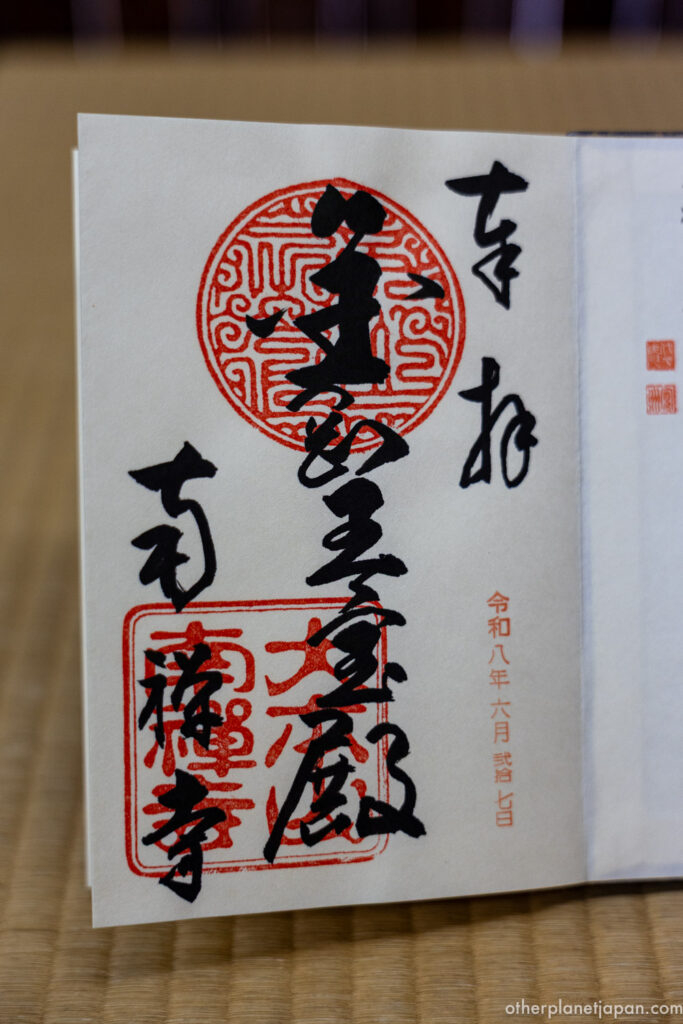 奉拝
令和八年六月弐拾七日
金剛王宝殿
南禅寺
大本山
南禪寺
otherplanetjapan.com